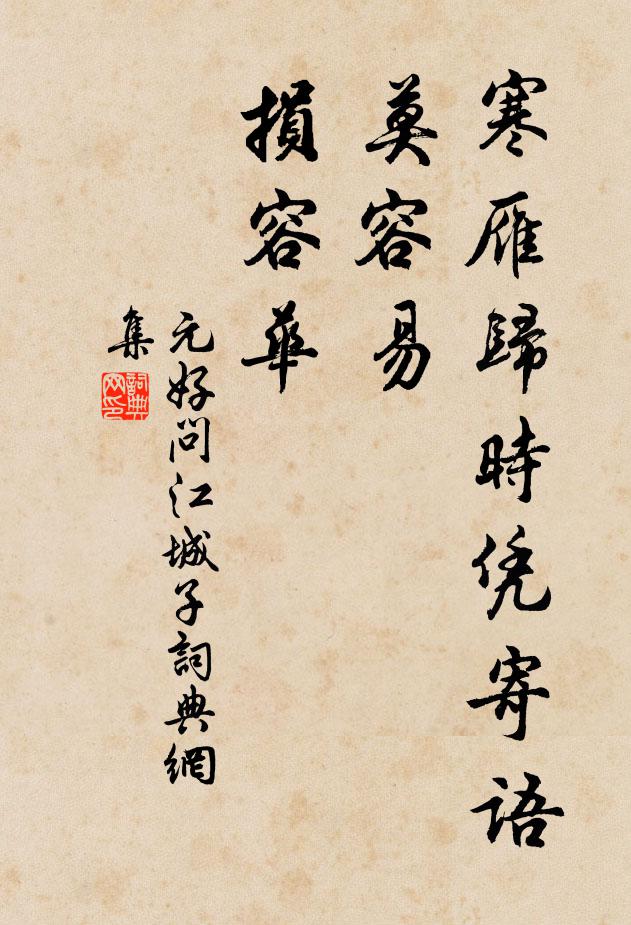 寒雁歸時凭寄語
莫容易
損容華
元好问江城子詞典網
集
詞典网印